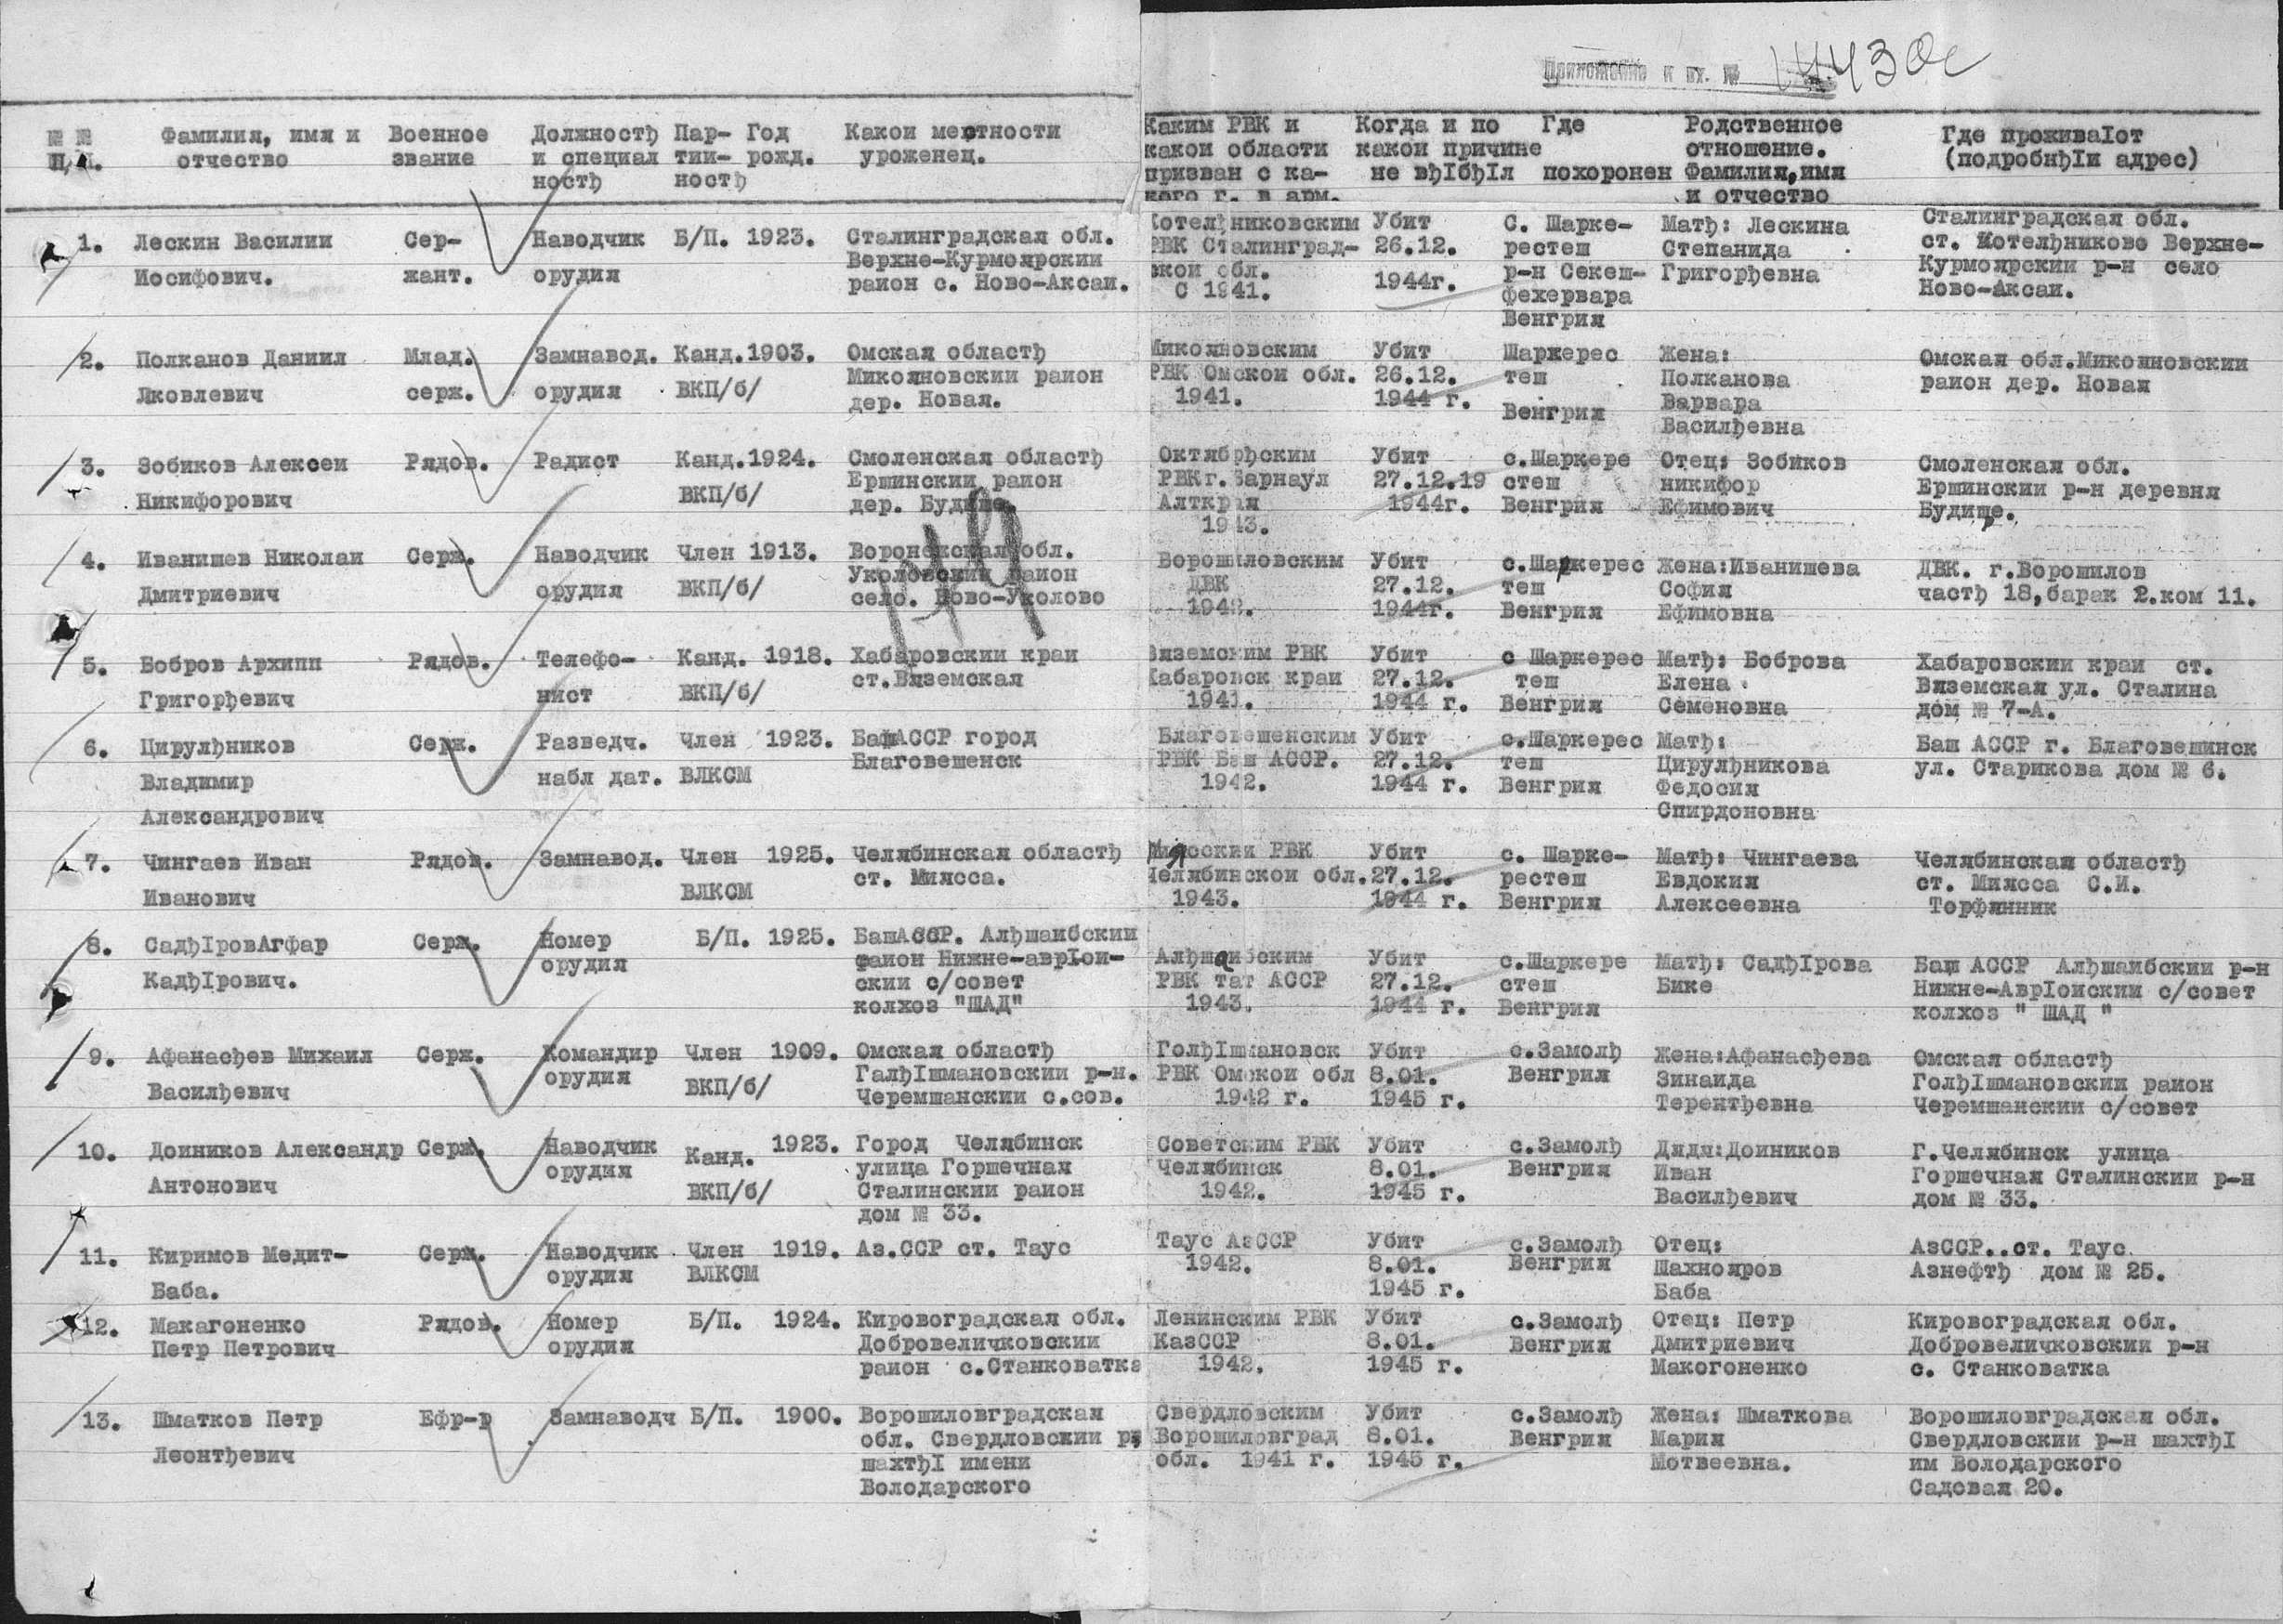 Приложение к вх. № 14430с
№ № п/п. Фамилия, имя и отчество Военное звание Должностђ и специал ностђ Пар- тии- ностђ Год рожд. Какои местности уроженец. Каким РВК и какои области призван с ка- кого г. в арм. Когда и по какои причине не вђIбђIл Где похоронен Родственное отношение. Фамилия,имя и отчество Где проживаIот (подробнђIи адрес)
1. Лескин Василии Сер- Наводчик Б/П. 1923. Сталинградская обл. Котелђниковским Убит С. Шарке- Матђ: Лескина Сталинградская обл.
Иосифович. жант. орудия Верхне-Курмоярскии РВК Сталинград- 26.12. рестеш Степанида ст. Котелђниково Верхне-
район с. Ново-Аксаи. скои обл. 1944г. р-н Секеш- Григорђевна Курмоярскии р-н село
С 1941. фехервара Ново-Аксаи.
Венгрия
2. Полканов Даниил Млад. Замнавод. Канд. 1903. Омская областђ Микояновским Убит Шаркерес Жена: Омская обл.Микояновскии
Яковлевич серж. орудия ВКП/б/ Микояновскии раион РВК Омскои обл. 26.12. теш Полканова раион дер. Новая
дер. Новая. 1941. 1944 г. Венгрия Варвара
Василђевна
3. Зобиков Алексеи Рядов. Радист Канд. 1924. Смоленская областђ Октябрђским Убит с.Шаркере Отец: Зобиков Смоленская обл.
Никифорович ВКП/б/ Ершинскии раион РВК г.Барнаул 27.12.19 стеш никифор Ершинскии р-н деревня
дер. Будище. Алткрая 1944г. Венгрия Ефимович Будище.
1943.
4. Иванишев Николаи Серж. Наводчик Член 1913. Воронежская обл. Ворошиловским Убит с.Шаркерес Жена:Иванишева ДВК. г.Ворошилов
Дмитриевич орудия ВКП/б/ Уколовскии раион ДВК 27.12. теш София частђ 18,барак 2.ком 11.
село. Ново-Уколово 1942. 1944г. Венгрия Ефимовна
5. Бобров Архипп Рядов. Телефо- Канд. 1918. Хабаровскии краи Вяземским РВК Убит с Шаркерес Матђ: Боброва Хабаровскии краи ст.
Григорђевич нист ВКП/б/ ст.Вяземская Хабаровск краи 27.12. теш Елена Вяземская ул. Сталина
1941. 1944 г. Венгрия Семеновна дом № 7-А.
6. Цирулђников Серж. Разведч. Член 1923. БашАССР город Благовешенским Убит с.Шаркерес Матђ: Баш АССР г. Благовешинск
Владимир набл дат. ВЛКСМ Благовешенск РВК Баш АССР. 27.12. теш Цирулђникова ул. Старикова дом № 6.
Александрович 1942. 1944 г. Венгрия Федосия
Спирдоновна
7. Чингаев Иван Рядов. Замнавод. Член 1925. Челябинская областђ Миясскии РВК Убит с. Шарке- Матђ: Чингаева Челябинская областђ
Иванович ВЛКСМ ст. Миясса. Челябинскои обл. 27.12. рестеш Евдокия ст. Миясса С.И.
1943. 1944 г. Венгрия Алексеевна Торфянник
8. СадђIровАгфар Серж. Номер Б/П. 1925. БашАССР. Алђшаибскии Алђшаибским Убит с.Шаркере Матђ: СадђIрова Баш АССР Алђшаибскии р-н
КадђIрович. орудия раион Нижне-аврIои- РВК тат АССР 27.12. стеш Бике Нижне-АврIоискии с/совет
скии с/совет 1943. 1944 г. Венгрия колхоз " ШАД "
колхоз "ШАД"
9. Афанасђев Михаил Серж. Командир Член 1909. Омская областђ ГолђIшмановск Убит с.Замолђ Жена:Афанасђева Омская областђ
Василђевич орудия ВКП/б/ ГалђIшмановскии р-н. РВК Омскои обл 8.01. Венгрия Зинаида ГолђIшмановскии раион
Черемшанскии с.сов. 1942 г. 1945 г. Терентђевна Черемшанскии с/совет
10. Доиников Александр Серж. Наводчик Канд. 1923. Город Челябинск Советским РВК Убит с.Замолђ Дядя:Доиников Г.Челябинск улица
Антонович орудия ВКП/б/ улица Горшечная Челябинск 8.01. Венгрия Иван Горшечная Сталинскии р-н
Сталинскии раион 1942. 1945 г. Василђевич дом № 33.
дом № 33.
11. Киримов Медит- Серж. Наводчик Член 1919. Аз.ССР ст. Таус Таус АзССР Убит с.Замолђ Отец: АзССР..ст. Таус
Баба. орудия ВЛКСМ 1942. 8.01. Венгрия Шахнояров Азнефтђ дом № 25.
1945 г. Баба
12. Макагоненко Рядов. Номер Б/П. 1924. Кировоградская обл. Ленинским РВК Убит с.Замолђ Отец: Петр Кировоградская обл.
Петр Петрович орудия Добровеличковскии КазССР 8.01. Венгрия Дмитриевич Добровеличковскии р-н
раион с.Станковатка 1942. 1945 г. Макогоненко с. Станковатка
13. Шматков Петр Ефр-р Замнаводч Б/П. 1900. Ворошиловградская Свердловским Убит с.Замолђ Жена: Шматкова Ворошиловградская обл.
Леонтђевич обл. Свердловскии р, Ворошиловград 8.01. Венгрия Мария Свердловскии р-н шахтђI
шахтђI имени обл. 1941 г. 1945 г. Мотвеевна. им Володарского
Володарского Садовая 20.